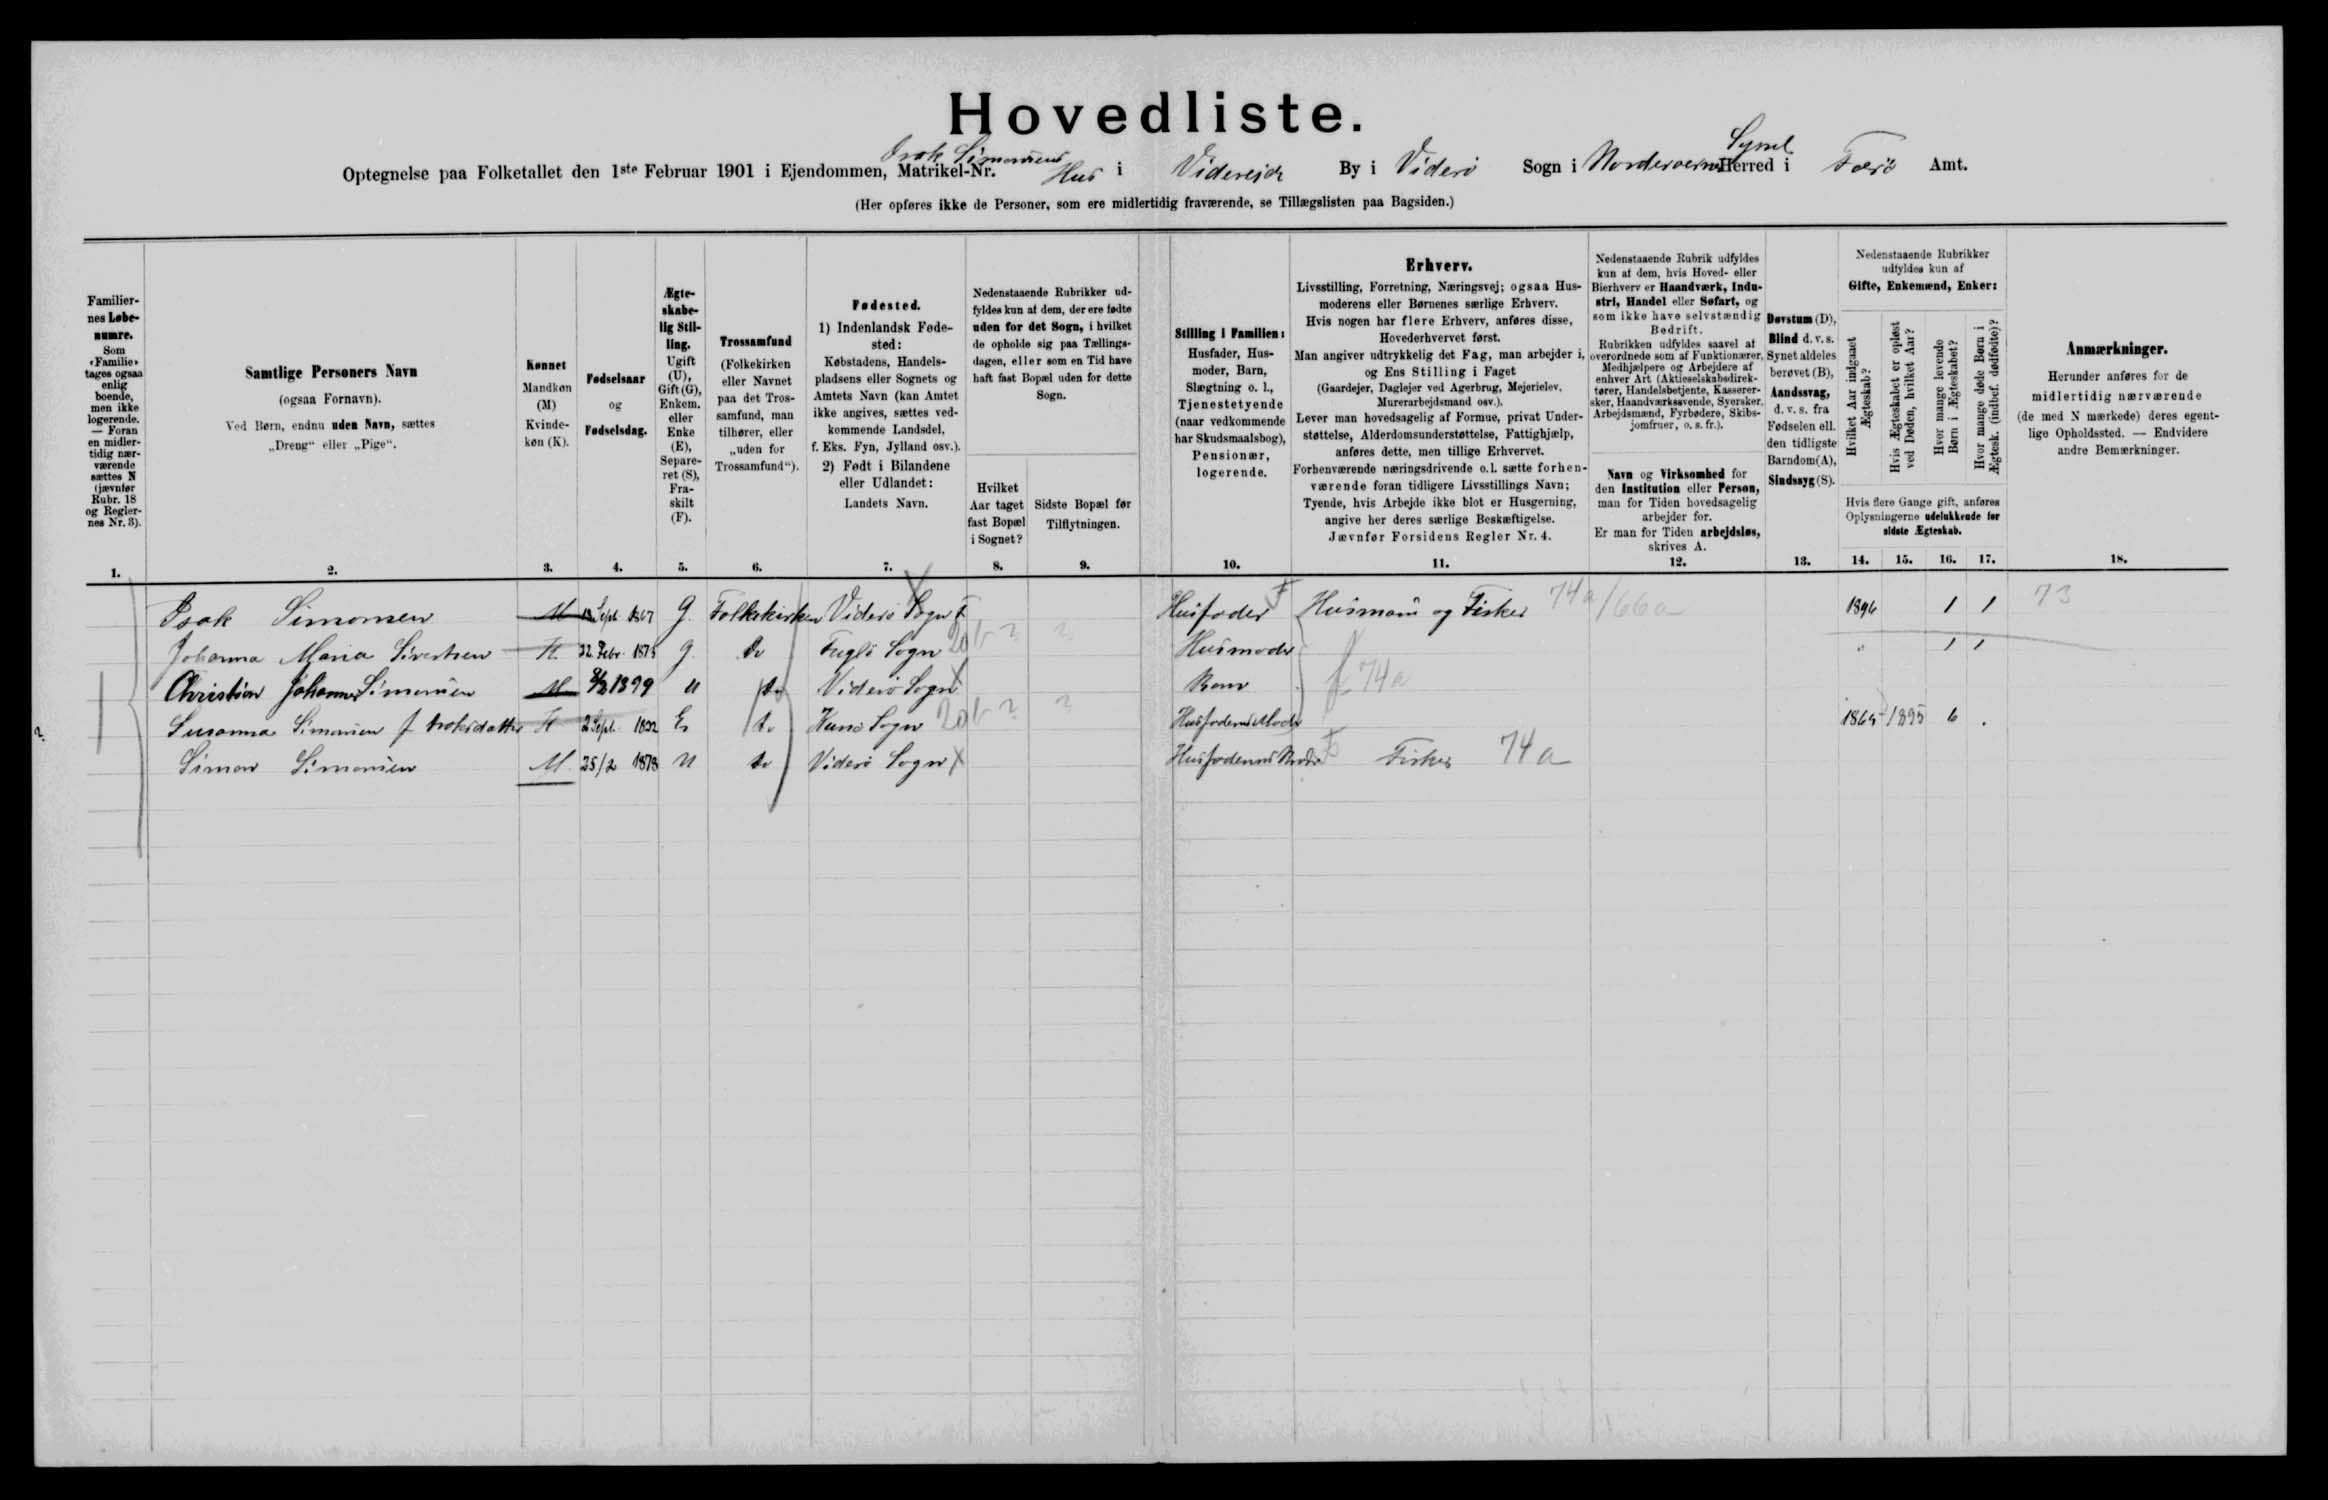 Hovedliste.
Optegnelse paa Folketallet den 1ste Februar 1901 i Ejendommen, Matrikel-Nr. Isak Simonsens Hus i Videreide By i Viderø Sogn i Norderoernes Syssel Herred i Færø Amt.
(Her opføres ikke de Personer, som ere midlertidig fraværende, se Tillægslisten paa Bagsiden.)
Familiernes Løbenumre.
Som «Familie» tages ogsaa enlig boende, men ikke logerende. — Foran en midlertidig nærværende sættes N (jævnfør Rubr. 18 og Reglernes Nr. 3).
1.
Samtlige Personers Navn
(ogsaa Fornavn).
Ved Børn, endnu uden Navn, sættes
„Dreng“ eller „Pige“.
2.
Kønnet
Mandkøn (M)
Kvindekøn (K).
3.
Fødselsaar
og
Fødselsdag.
4.
Ægteskabelig Stilling.
Ugift (U), Gift (G), Enkem. eller Enke (E), Separeret (S), Fraskilt (F).
5.
Trossamfund
(Folkekirken eller Navnet paa det Trossamfund, man tilhører, eller „uden for Trossamfund“).
6.
Fødested.
1) Indenlandsk Fødested:
Købstadens, Handelspladsens eller Sognets og Amtets Navn (kan Amtet ikke angives, sættes vedkommende Landsdel, f. Eks. Fyn, Jylland osv.).
2) Født i Bilandene eller Udlandet:
Landets Navn.
7.
Nedenstaaende Rubrikker udfyldes kun af dem, der ere fødte uden for det Sogn, i hvilket de opholde sig paa Tællingsdagen, eller som en Tid have haft fast Bopæl uden for dette Sogn.
Hvilket Aar taget fast Bopæl i Sognet?
8.
Sidste Bopæl før Tilflytningen.
9.
Stilling i Familien:
Husfader, Husmoder, Barn, Slægtning o. l., Tjenestetyende (naar vedkommende har Skudsmaalsbog), Pensionær, logerende.
10.
Erhverv.
Livsstilling, Forretning, Næringsvej; ogsaa Husmoderens eller Børnenes særlige Erhverv.
Hvis nogen har flere Erhverv, anføres disse, Hovederhvervet først.
Man angiver udtrykkelig det Fag, man arbejder i, og Ens Stilling i Faget
(Gaardejer, Daglejer ved Agerbrug, Mejerielev, Murerarbejdsmand osv.).
Lever man hovedsagelig af Formue, privat Understøttelse, Alderdomsunderstøttelse, Fattighjælp, anføres dette, men tillige Erhvervet.
Forhenværende næringsdrivende o.l. sætte forhenværende foran tidligere Livsstillings Navn;
Tyende, hvis Arbejde ikke blot er Husgerning, angive her deres særlige Beskæftigelse.
Jævnfør Forsidens Regler Nr. 4.
11.
Nedenstaaende Rubrik udfyldes kun af dem, hvis Hoved- eller Bierhverv er Haandværk, Industri, Handel eller Søfart, og som ikke have selvstændig Bedrift.
Rubrikken udfyldes saavel af overordnede som af Funktionærer, Medhjælpere og Arbejdere af enhver Art (Aktieselskabsdirektører, Handelsbetjente, Kasserersker, Haandværkssvende, Syersker, Arbejdsmænd, Fyrbødere, Skibsjomfruer, o. s. fr.).
Navn og Virksomhed for den Institution eller Person, man for Tiden hovedsagelig arbejder for.
Er man for Tiden arbejdsløs, skrives A.
12.
Døvstum (D), Blind d. v. s. Synet aldeles berøvet (B), Aandssvag, d. v. s. fra Fødselen ell. den tidligste Barndom (A), Sindssyg (S).
13.
Nedenstaaende Rubrikker udfyldes kun af
Gifte, Enkemænd, Enker:
Hvilket Aar indgaaet Ægteskab?
Hvis Ægteskabet er opløst ved Døden, hvilket Aar?
Hvor mange levende Børn i Ægteskabet?
Hvor mange døde Børn i Ægtesk. (indbef. dødfødte)?
Hvis flere Gange gift, anføres Oplysningerne udelukkende for sidste Ægteskab.
14. 15. 16. 17.
Anmærkninger.
Herunder anføres for de midlertidig nærværende (de med N mærkede) deres egentlige Opholdssted. — Endvidere andre Bemærkninger.
18.
Isak Simonsen M Sept. 1867 G. Folkekirken Viderø Sogn Husfader Husmand og Fisker 74a/66a 1896 1 1 73
Johanna Maria Sivertsen K 22 Febr. 1875 G. do Fuglø Sogn 20b ? ? Husmoder " 1 1
Christian Johannes Simonsen M 1899 U do Viderø Sogn Barn f 74a
Susanna Simonsen f. Isaksdatter K 2 Sept. 1822 E do Sogn 20b ? ? Husfaderens Moder 1865 1895 6 .
Simon Simonsen M 25/2 1878 U do Viderø Sogn Husfaderens Broder Fisker 74a